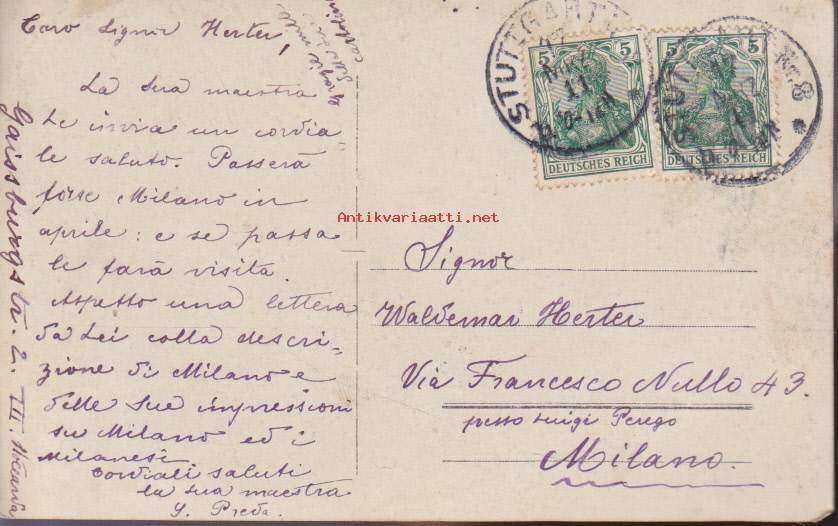 Caro Signor Herter,
La sua maestra
Le invia un cordia-
le saluto. Passerà
forse Milano in
aprile: e se passa
le farà visita.
Aspetto una lettera
da Lei colla descri-
zione di Milano e
delle Sue impressioni
su Milano ed i
milanesi
Cordiali saluti
la sua maestra
Y. Preda.
Grazie
cartolina
Gaissburgstr. 2. III.
STUTTGART
11
5 5
DEUTSCHES REICH
5 5
DEUTSCHES REICH
STUT
Nr. 8
Antikvariaatti.net
Signor
Waldemar Herter
Via Francesco Nullo 43.
presso Luigi Perego
Milano.